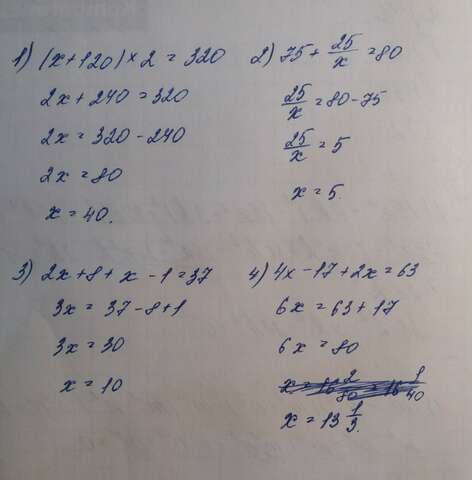 1) (x+120)×2=320
2x+240=320
2x=320-240
2x=80
x=40.
2) 75+25/x=80
25/x=80-75
25/x=5
x=5.
3) 2x+8+x-1=37
3x=37-8+1
3x=30
x=10
4) 4x-17+2x=63
6x=63+17
6x=80
x=13 1/3.